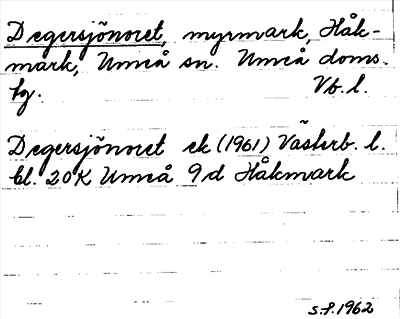 Degersjönoret, myrmark, Håk-
mark, Umeå sn. Umeå doms.
hg. Vb. l.
Degersjönoret ek (1961) Västerb. l.
bl. 20K Umeå 9d Håkmark
S.P. 1962